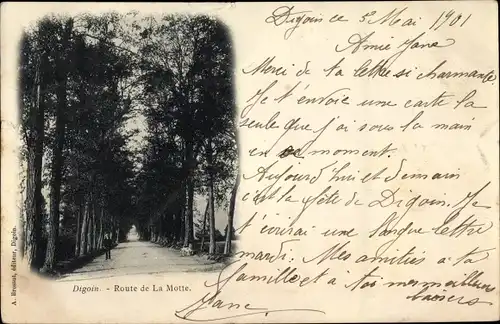 Digoin ce 5 Mai 1901
Amie Jeane
Merci de ta lettre si charmante
Je t'envoie une carte la
seule que j'ai sous la main
en ce moment.
Aujourd'hui et demain
c'est la fête de Digoin. Je
t'écrirai une longue lettre
mardi. Mes amitiés à ta
famille et à toi mes meilleurs
baisers
Jane
Digoin. - Route de La Motte.
A. Brunet, éditeur, Digoin.